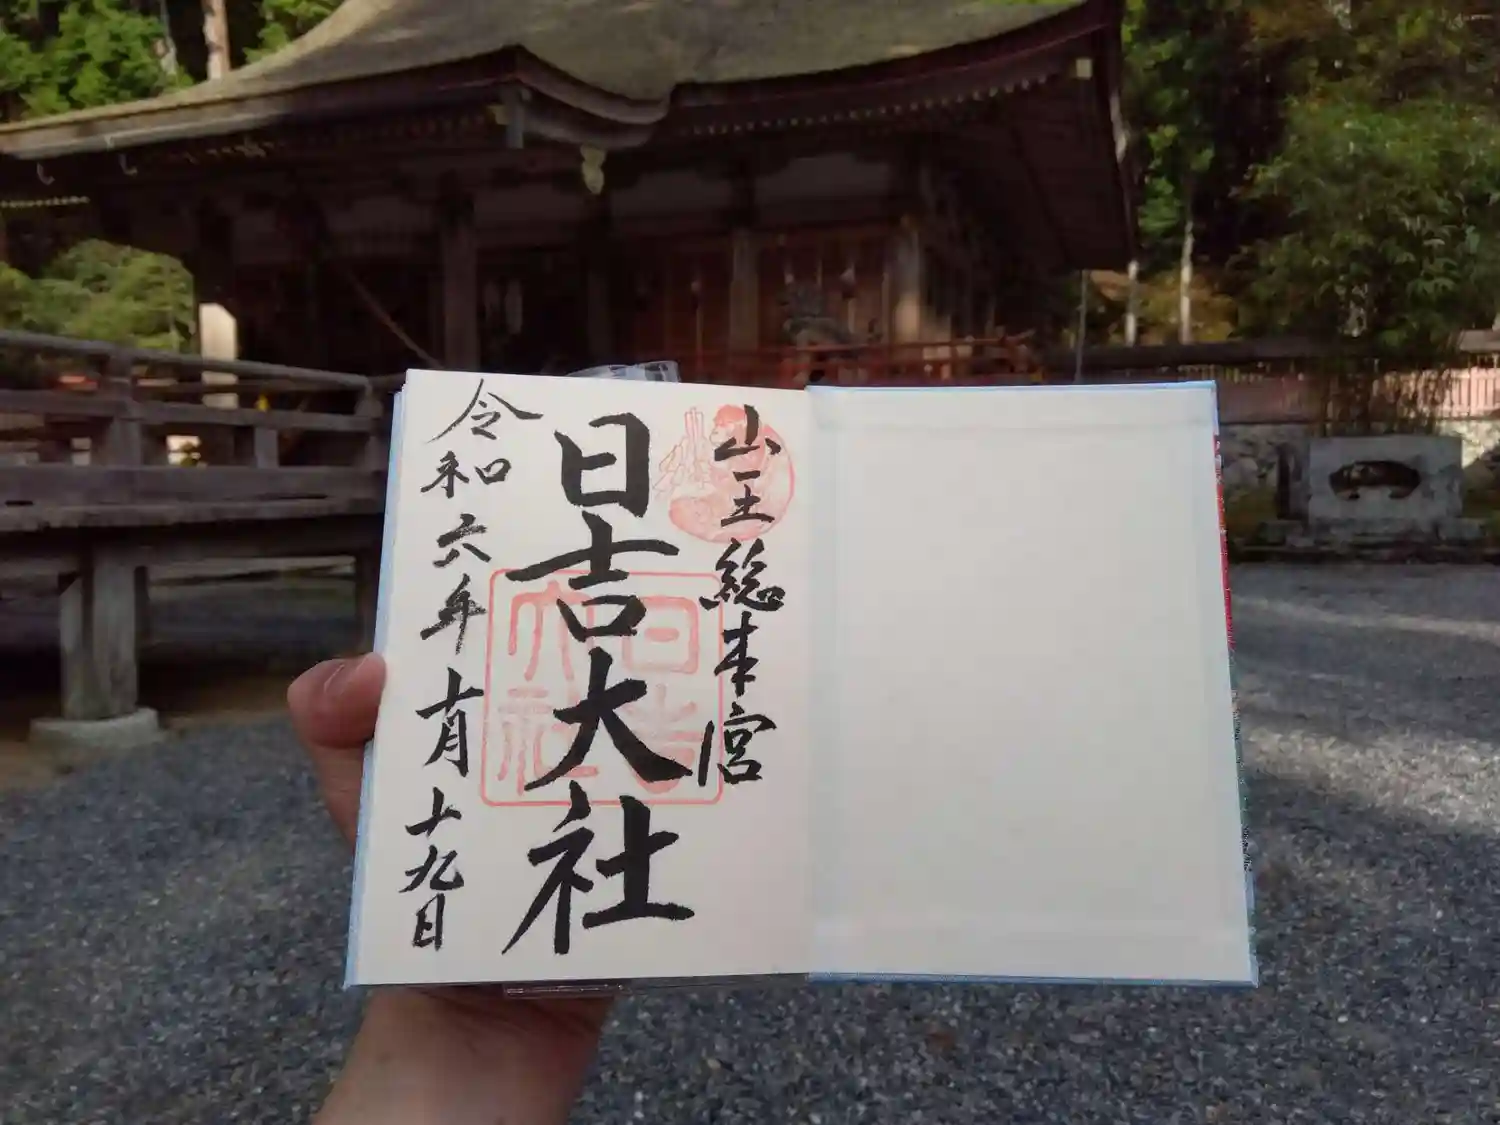 山王総本宮
日吉大社
日吉
大社
令和六年十月十九日